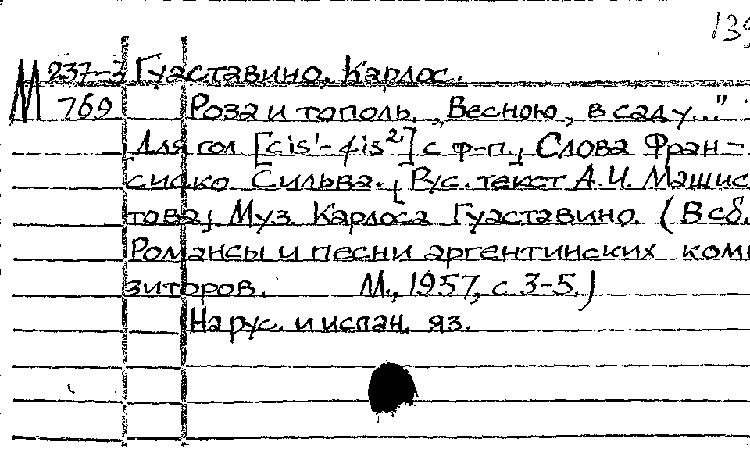 139
М 237-3 Гуаставино, Карлос.
769 Роза и тополь. „Весною, в саду..."
Для гол [cis¹-fis²] с ф-п., Слова Фран-
сиско Сильва. [Рус. текст А.И. Машис
това] Муз Карлоса Гуаставино. (В сб.
Романсы и песни аргентинских комп
зиторов. М., 1957, с. 3-5.)
На рус. и испан. яз.